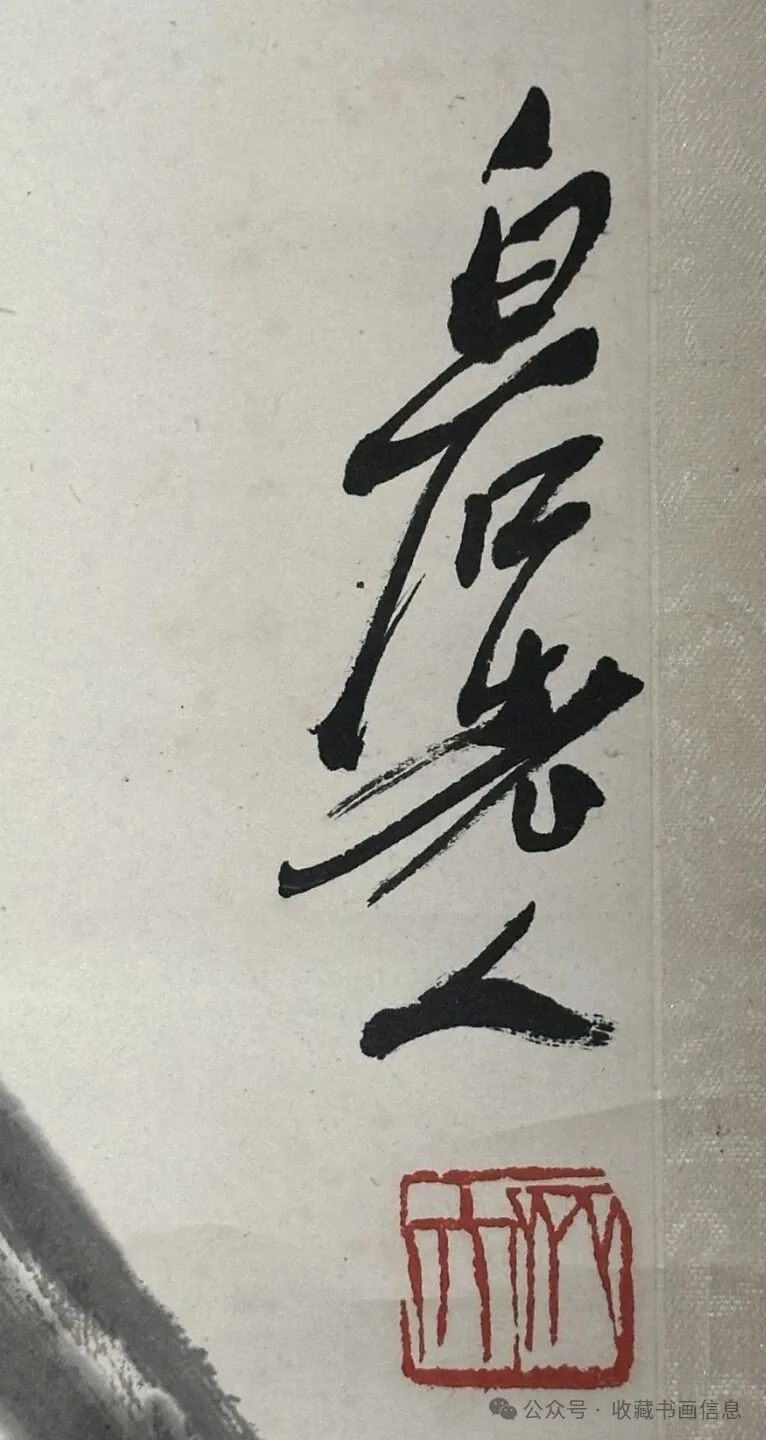 白石老人
木人
公众号 · 收藏书画信息